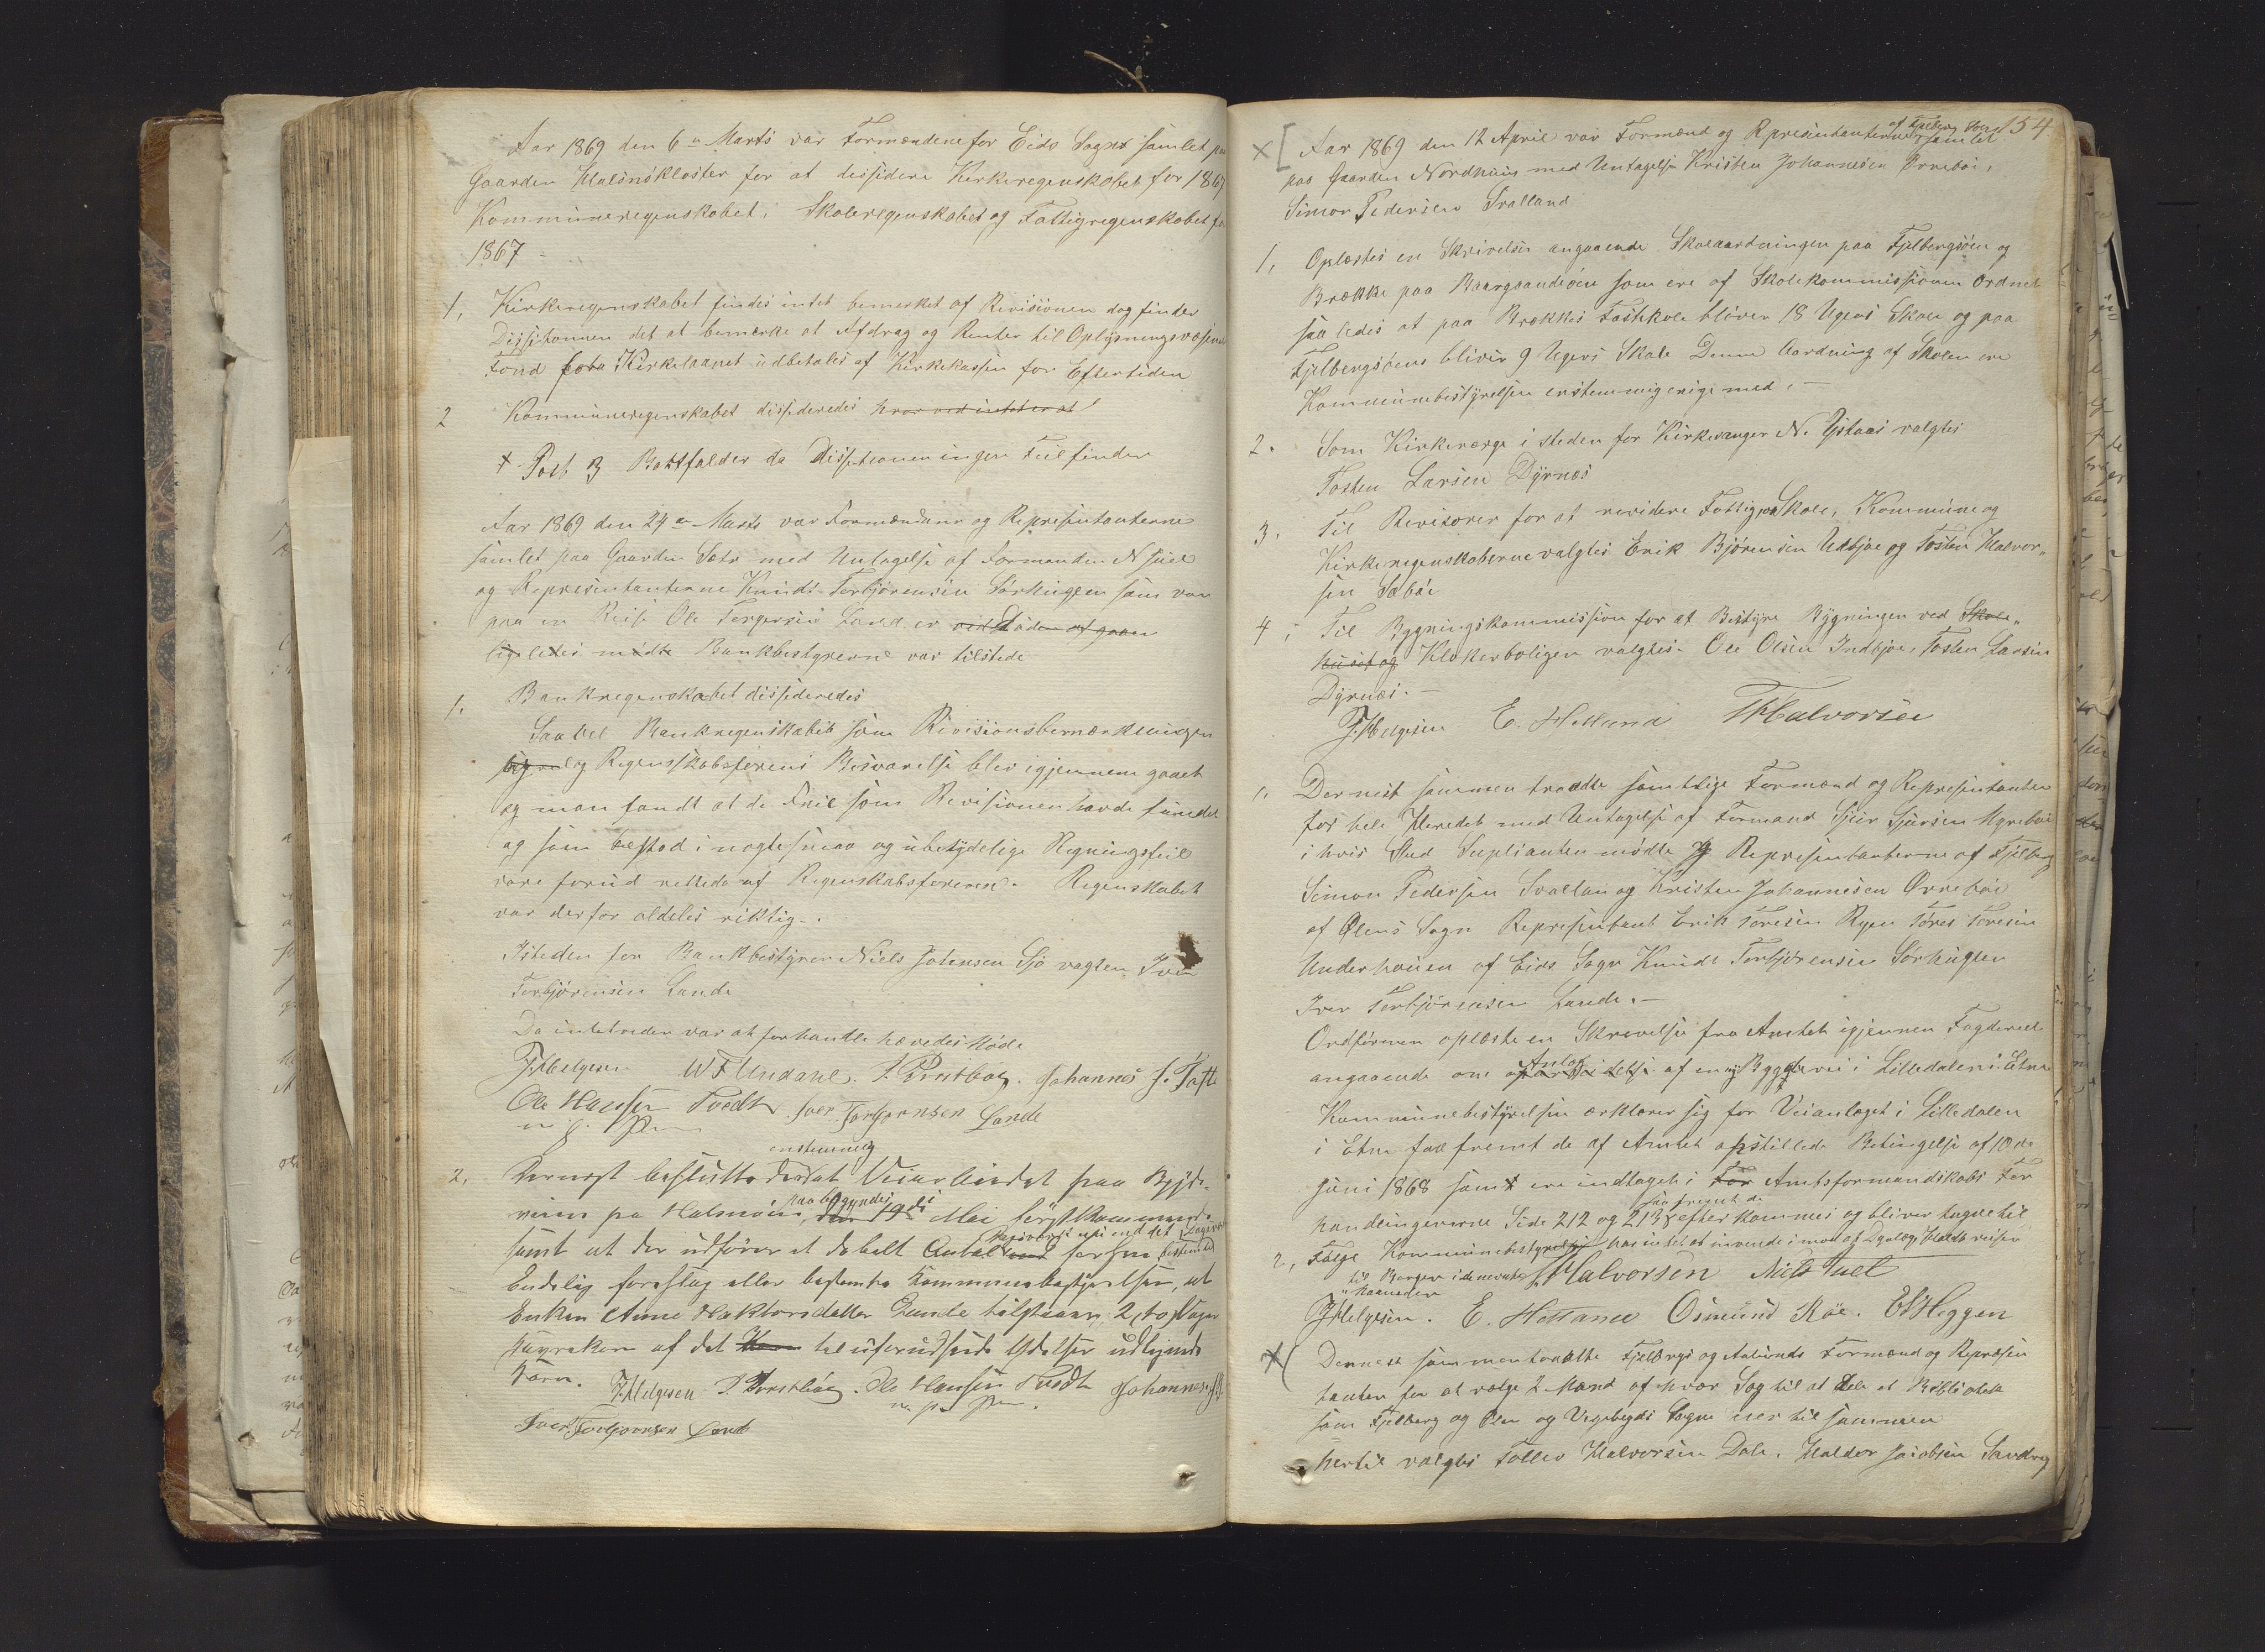 Aar 1869 den 6te Marts var Formændene for Eids Sogn samlet paa
Gaarden Halsnökloster for at desidere Kirkeregenskabet for 1867
Kommuneregenskabet, Skoleregenskabet og Fattigregenskabet for
1867
1, Kirkeregenskabet findes intet bemerket af Revisionen dog finder
Dissisionen det at bemærke at Afdrag og Renter til Oplysningsvæsenets
Fond Kirkelaanet udbetales af Kirkekassen for Eftertiden
2 Kommuneregenskabet dissideredes hvor ved intet er at
+ Post 3 Bortfalder da Dissitionen ingen Feil finder
Aar 1869 den 24de Marts var Formændene og Representanterne
samlet paa Gaarden Sætr med Untagelse af Formanden N Juel
og Representanterne Knud Torbjörensen Sörhuglen som var
paa en Reise Ole Torgersen Lund
ligeledes mödte Bankbestyrerne var tilstede
1. Bankregenskabet dissideredes
Saa vel Bankregenskabet som Revisionsbemærkningen
og Regenskabsförens Besvarelse blev igjennem gaaet
og man fandt at de Feil som Revisionen havde fundet
og som bestod i nogle smaa og ubetydelige Regningsfeil
vare forud rettede af Regenskabsföreren. Regenskabet
var derfor aldeles riktig.
Isteden for Bankbestyrer Niels Johnsen Sjö valgtes Iver
Torbjörensen Lande
Da intet veder var at forhandle hævedes Möde
J. Helgesen W F Undahl. Johannes J. Tofte
Ole Hansen Tvedt Iver Torbjornsen Lande
m. f. Pen
enstemmig
2, Dernest besluttedes at Veiarbeidet paa Bygde-
veien pa Halsnöen paa begyndes den 19de Mai förstkommende
samt at der udföres et dobelt Antal Dagsverk
Endelig foreslog eller bestemte Kommunebestyrelsen, at
Enken Anne Haktorsdatter Lunde tilstaaes 2 (to) Vager
Havrekorn af det til uforudseede Udelser udlignede
Korn. J. Helgesen Ole Hansen Tvedt Johannes J.
m. p. Pen.
Iver Torbjornsen Lande
154
af Fjelberg Sogn
Aar 1869 den 12 April var Formænd og Representanterne samlet
paa Gaarden Nordhuus med Untagelse Kristen Johannesen Ørrebøe,
Simon Pedersen Svalland
1, Oplæstes en Skrivelse angaaende Skoleaardningen paa Fjelbergsøen og
Brække paa Baargsundøen som ere af Skolekommissionen Ordnet
saaledes at paa Brækkes Fastskole bliver 18 Ugers Skole og paa
Fjelbergsøens bliver 9 Ugers Skole Denne Aardning af Skolen ere
Kommunebestyrelsen enstemmig enige med. —
2. Som Kirkeværge i steden for Kirkesanger N. Ystaas valgtes
Tosten Larsen Dyrnæs
3. Til Revisorer for at revidere Fattig, Skole, Kommune og
Kirkeregenskaberne valgtes Erik Bjørensen Udbjoe og Tosten Halvor-
sen Sæbøe
4, Til Bygningskommission for at Bestyre Bygningen ved Skole-
huset og Klokkerboligen valgtes Ole Olsen Indbjoe, Tosten Larsen
Dyrnæs. —
J. Helgesen E. Hetland T Halvorsen
1. Dernest sammentraadte samtlige Formænd og Representanter
for hele Heredet med Untagelse af Formand Sjur Sjursen
i hvis Sted Suplianten mødte og Representanterne af Fjelberg
Simon Pedersen Svallan og Kristen Johannesen Ørrebøe
af Ølens Sogn Representant Erik Toresen Ryen Tores Toresen
Underhouen af Eids Sogn Knudt Torbjörensen Sörhuglen
Iver Torbjörensen Lande. —
Ordføreren oplæste en Skrivelse fra Amtet igjennem Fogderiet
angaaende om Anlæg af en ny Bygdevei i Lilledalen i Etne
Kommunebestyrelsen ærklærer sig for Veianlæget i Lilledalen
i Etne saafremt de af Amtet opstillede Betingelse af 10de
Juni 1868 samt ere indtaget i For Amtsformandskabs For
saafremt de
handlingerne Side 212 og 213 efterkommes og bliver tagne til
2, Følge Kommunebestyrelsen har intet at invende imod at Reiser
til Bergen i de nevnte Halvorsen Niels Juel
Maaneder
J. Helgesen. E. Hetland Osmund Röe. E Heggen
Dernest sammentraatte Fjelbergs og Aalunds Formænd og Represen
tanter for at vælge 2 Mænd af hver Sog til at dele et Bibliotek
som Fjelberg og Ølen og Vigebygds Sogne eier til sammen
hertil valgtes Tollev Halvorsen Dale, Haldor Jacobsen Sandvig